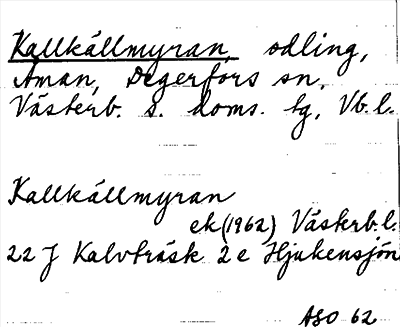 Kallkällmyran, odling,
Åman, Degerfors sn,
Västerb. s. doms. tg, Vb.l.
Kallkällmyran
ek (1962) Västerb.l.
22 J Kalvträsk 2 e Hjukensjön
ASO 62